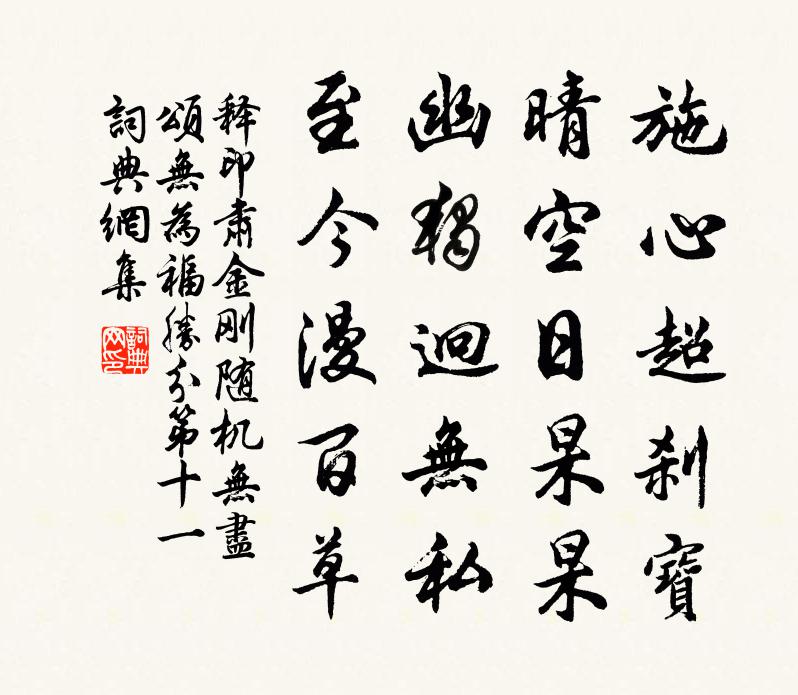 施心超刹寶
晴空日杲杲
幽獨迥無私
至今漫百草
释印肅金刚随机無盡
頌無為福勝分第十一
詞典網集
詞典網印